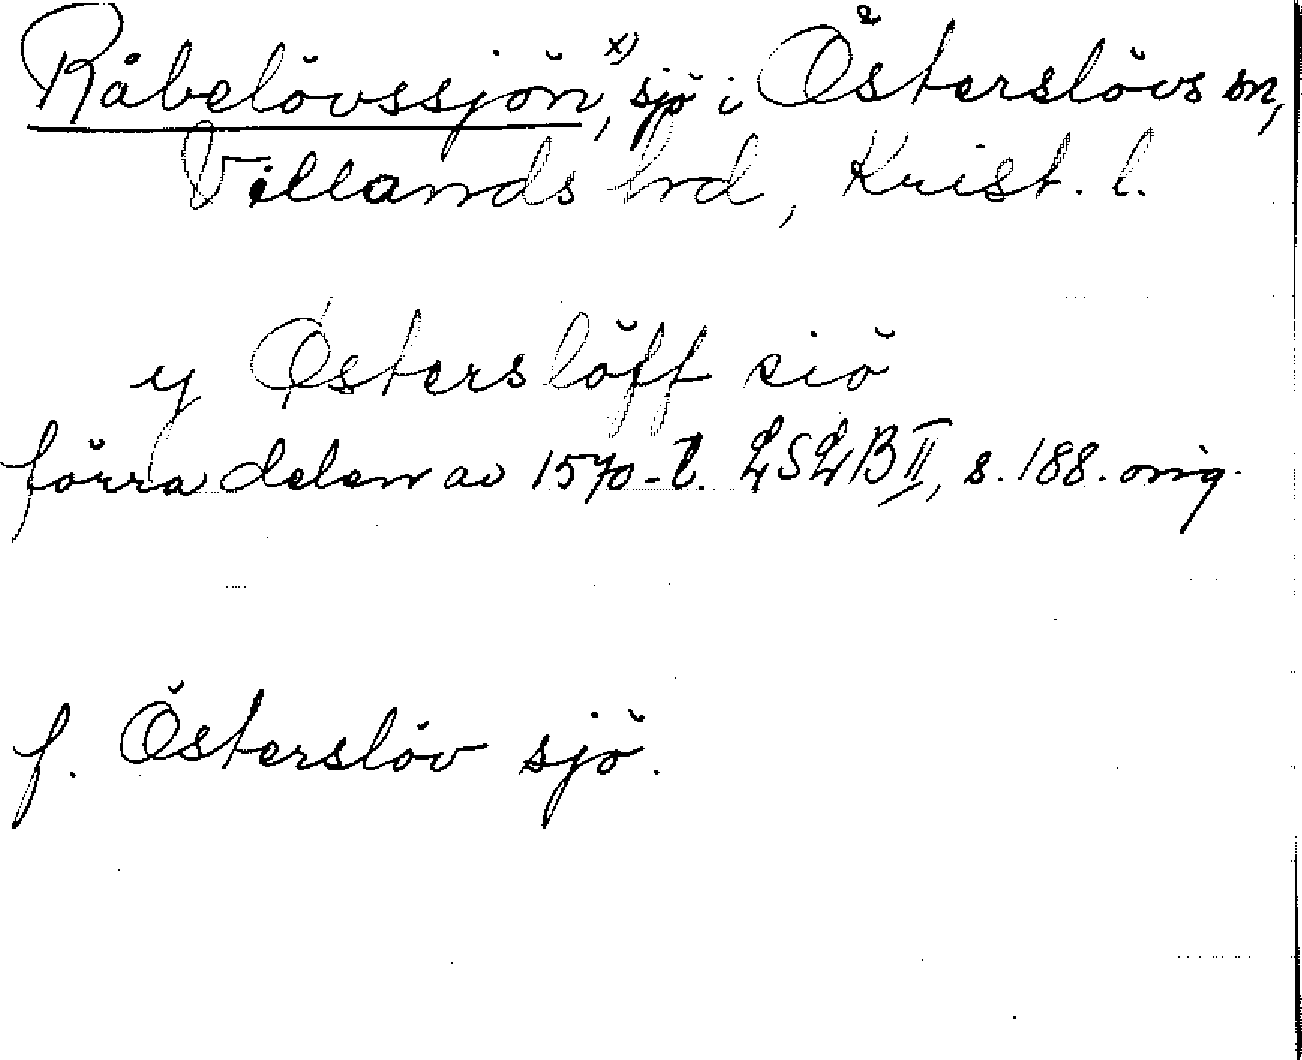 Råbelövssjön,x) sjö i Österslövs sn,
Villands hrd, Krist. l.
y Østerslöff siö
förra delen av 1570-t. LSLB II, s. 188. orig.
f. Österslöv sjö.